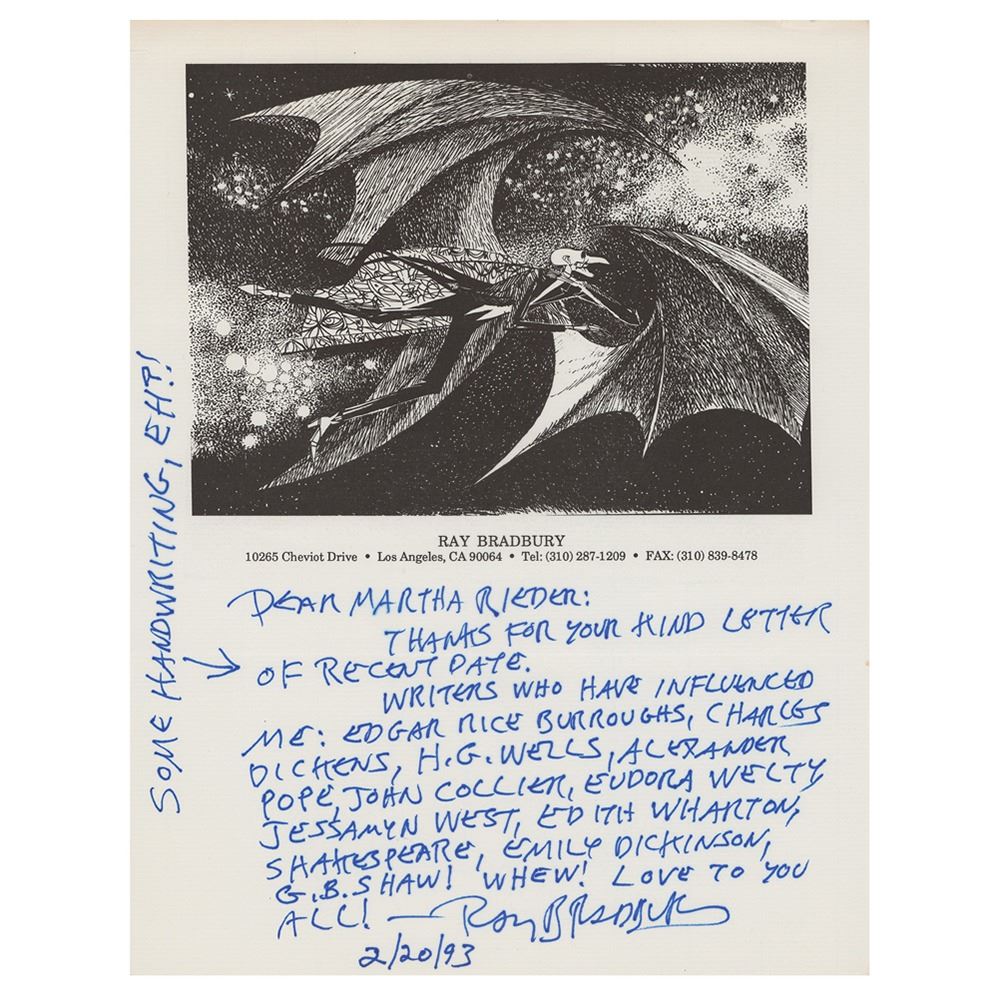 RAY BRADBURY
10265 Cheviot Drive • Los Angeles, CA 90064 • Tel: (310) 287-1209 • FAX: (310) 839-8478
SOME HANDWRITING, EH?!
DEAR MARTHA RIEDER:
THANKS FOR YOUR KIND LETTER
OF RECENT DATE.
WRITERS WHO HAVE INFLUENCED
ME: EDGAR RICE BURROUGHS, CHARLES
DICKENS, H.G. WELLS, ALEXANDER
POPE, JOHN COLLIER, EUDORA WELTY,
JESSAMYN WEST, EDITH WHARTON,
SHAKESPEARE, EMILY DICKINSON,
G.B. SHAW! WHEW! LOVE TO YOU
ALL! — RAY BRADBURY
2/20/93